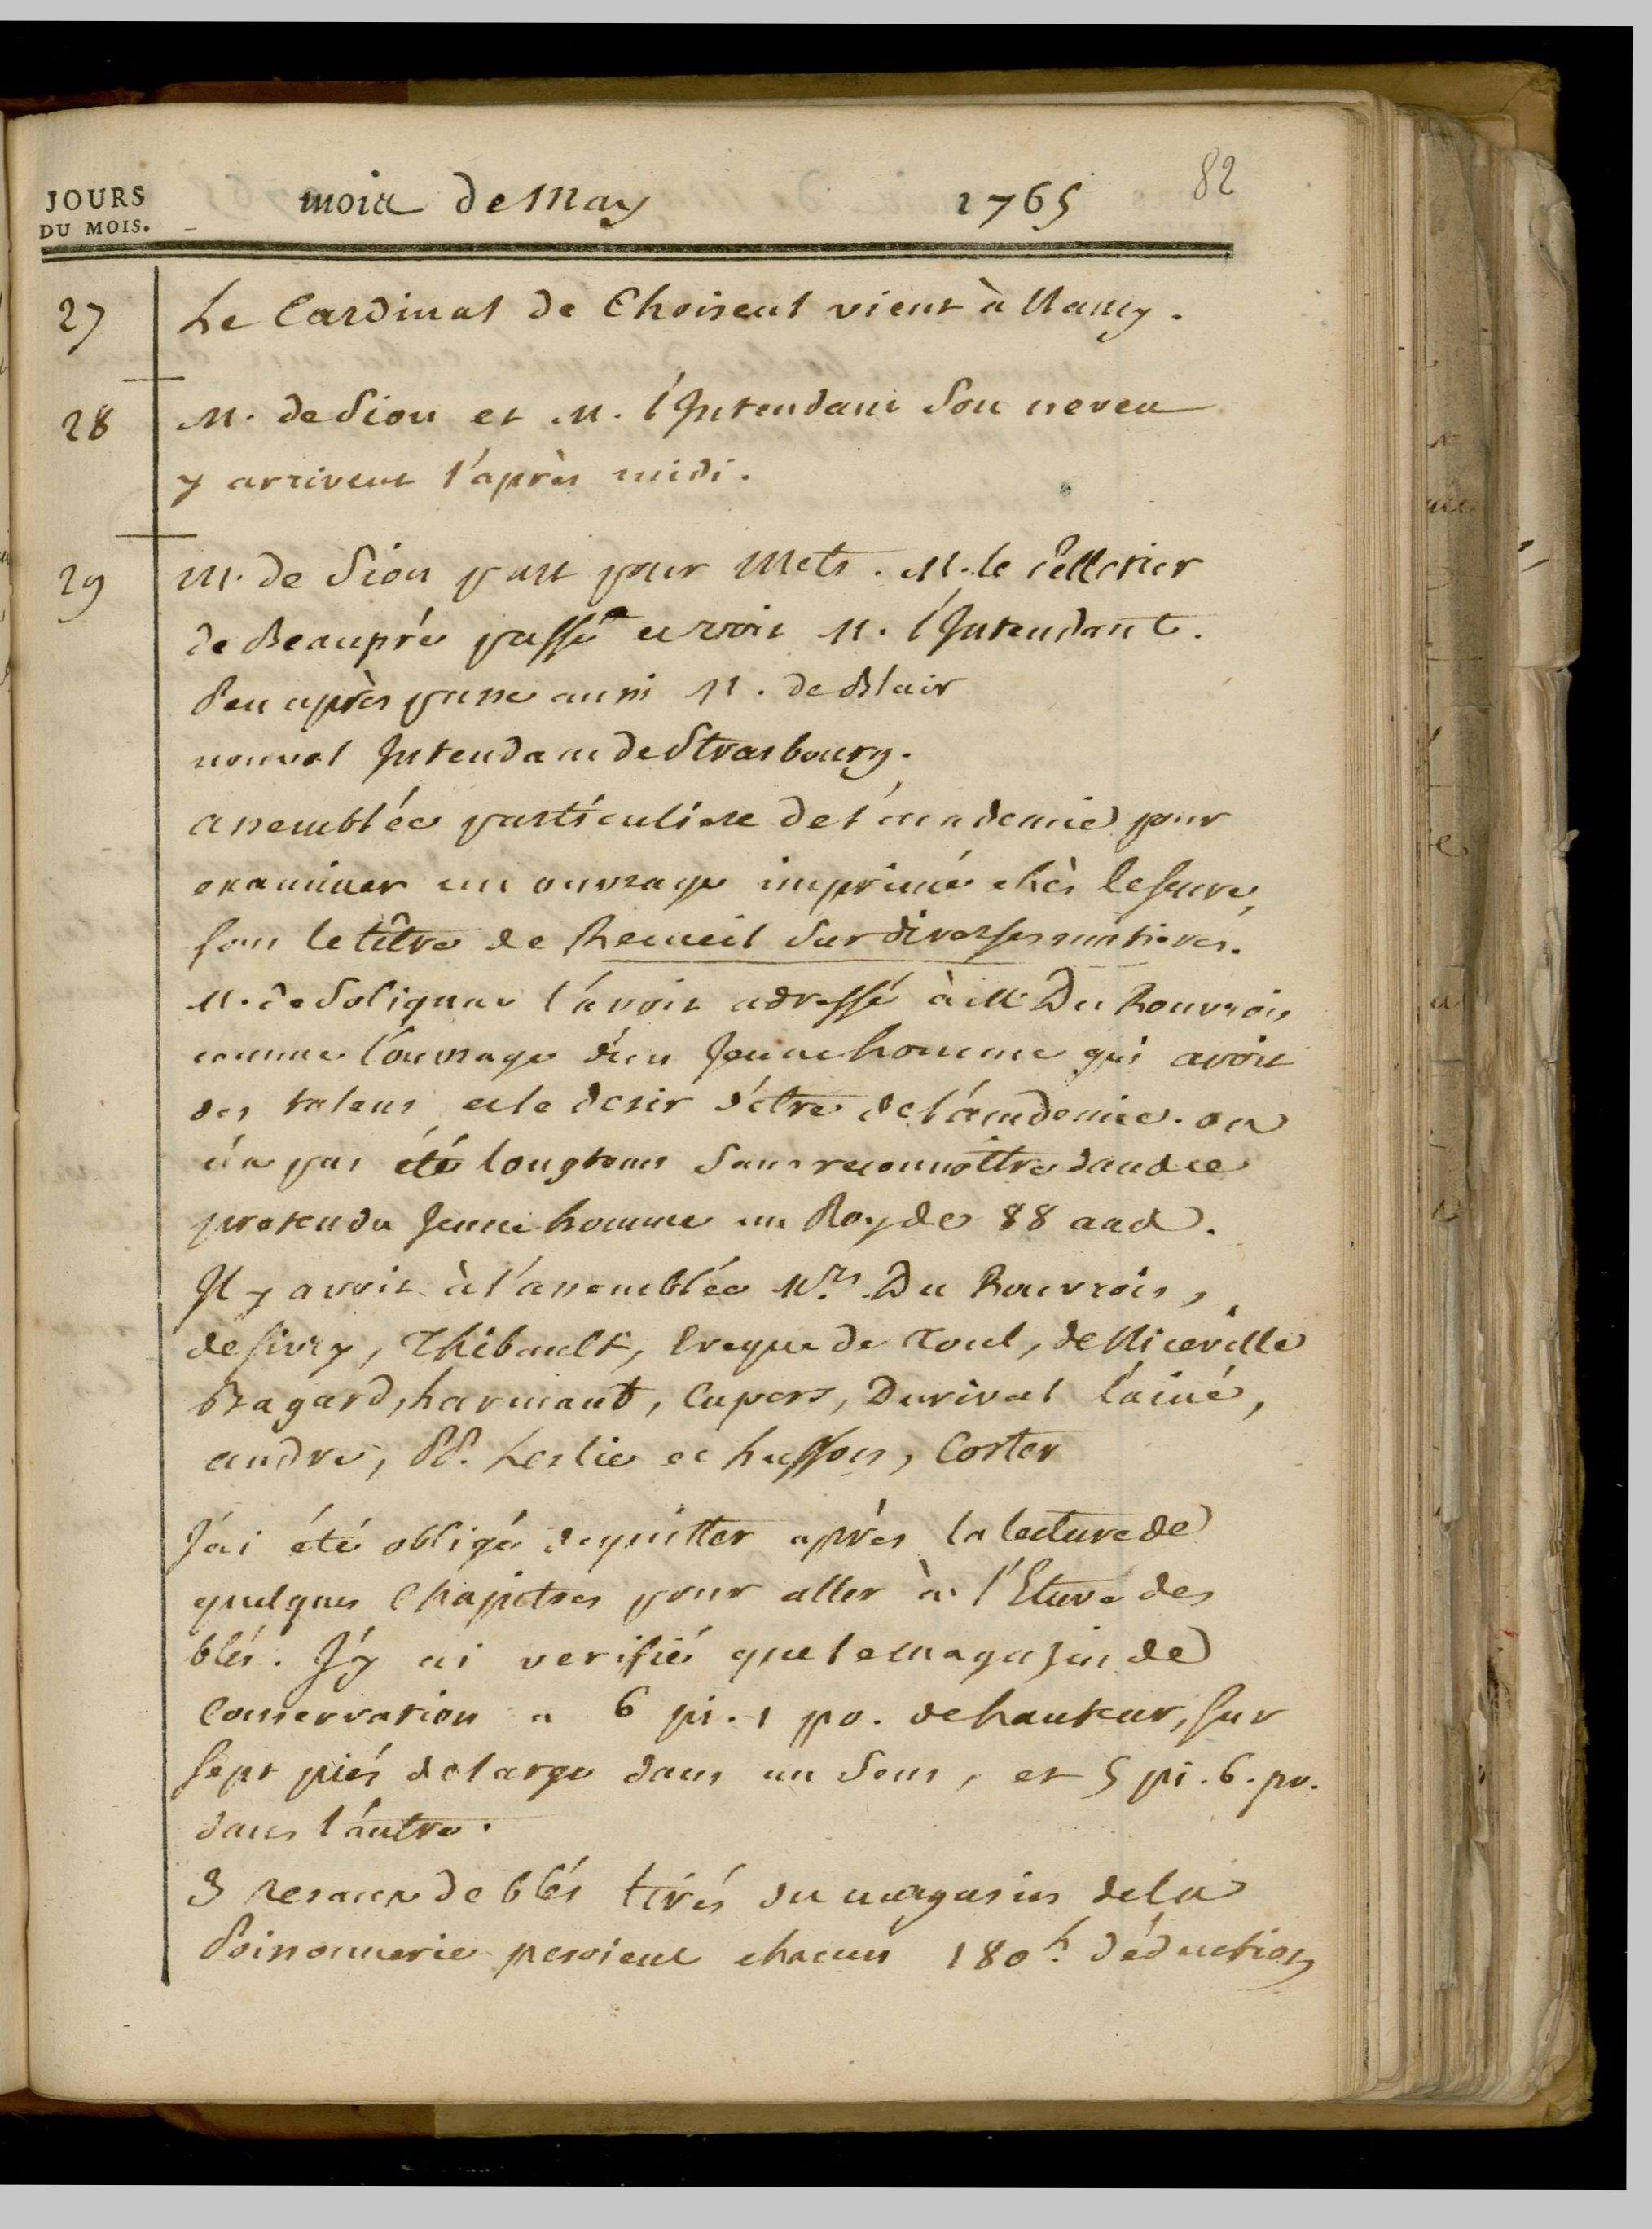 82
JOURS
DU MOIS.
mois de May 1765
27 Le Cardinal de Choiseul vient à Nancy.
28 M. de Sion et M. l'Intendant son neveu
y arrivent l'après midi.
29 M. de Sion part pour Mets. M. le Pelletier
de Beaupré passe et voit M. l'Intendant.
Peu après passe aussi M. de Blair
nouvel Intendant de Strasbourg.
assemblée particuliere de l'academie pour
examiner un ouvrage imprimé chès leseure,
sous le titre de Recueil sur diverses matieres.
M. de Solignac l'avoit adressé à M. Du Rouvrois
comme l'ouvrage d'un Jeune homme qui avoit
des talens et le desir d'être de l'academie. on
n'a pas été longtems sans reconnoître dans ce
pretendu Jeune homme un Roy de 88 ans.
Il y avoit à l'assemblée Mrs. Du Rouvrois,
de sivry, Thibault, Eveque de Toul, de Niceville
Bagard, harmant, Cupers, Durival l'ainé,
andré, PP. Leslie et husson, Coster
J'ai été obligé de quitter après la lecture de
quelques Chapitres pour aller à l'Etuve des
blés. J'y ai verifié que le magasin de
Conservation a 6 pi. 1 po. de hauteur, sur
sept piés de large dans un sens, et 5 pi. 6. po.
dans l'autre.
3 resaux de blés tirés du magasin de la
Poissonnerie pesoient chacun 180 h. déduction